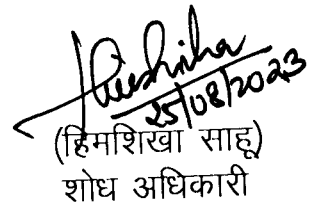 25/08/2023
(हिमशिखा साहू)
शोध अधिकारी